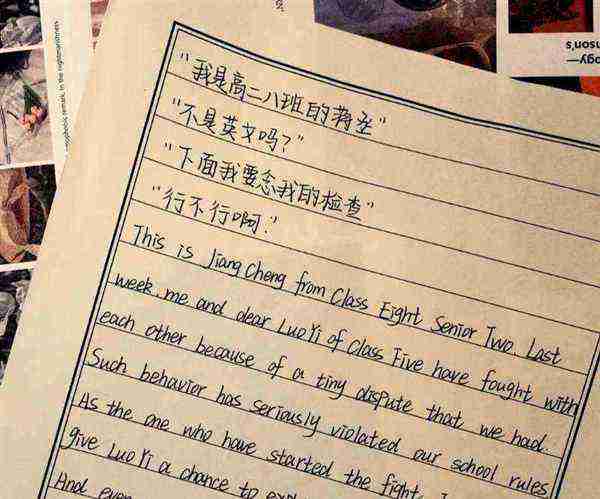 "我是高二八班的蒋丞"
"不是英文吗?"
"下面我要念我的检查"
"行不行啊!"
This is Jiang Cheng from Class Eight Senior Two. Last
week me and dear Luo Yi of Class Five have fought with
each other because of a tiny dispute that we had.
Such behavior has seriously violated our school rules
As the one who have started the fight, I
give Luo Yi a chance to
And even